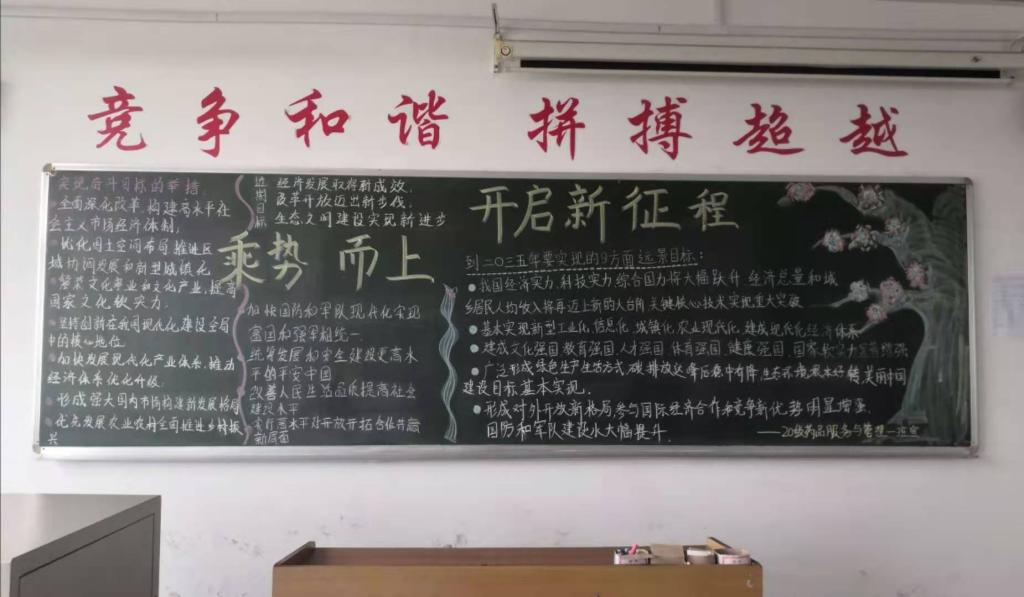 竞争和谐 拼搏超越
实现奋斗目标的举措
全面深化改革,构建高水平社
会主义市场经济体制,
优化国土空间布局 推进区
域协调发展和新型城镇化
繁荣文化事业和文化产业,提高
国家文化软实力.
坚持创新在我国现代化建设全局
中的核心地位.
加快发展现代化产业体系,推动
经济体系优化升级.
形成强大国内市场构建新发展格局
优先发展农业农村全面推进乡村振
兴
目标
经济发展取得新成效,
改革开放迈出新步伐,
生态文明建设实现新进步
乘势而上
加快国防和军队现代化实现
富国和强军相统一
统筹发展和安全建设更高水
平的平安中国
改善人民生活品质提高社会
建设水平
实行高水平对外开放开拓合作共赢
新局面
开启新征程
到二〇三五年要实现的9方面远景目标:
我国经济实力,科技实力,综合国力将大幅跃升,经济总量和城
乡居民人均收入将再迈上新的大台阶,关键核心技术实现重大突破
基本实现新型工业化,信息化,城镇化,农业现代化,建成现代化经济体系
建成文化强国,教育强国,人才强国,体育强国,健康强国,国家软实力显著增强
广泛形成绿色生产生活方式,碳排放达峰后稳中有降,生态环境根本好转,美丽中国
建设目标基本实现.
形成对外开放新格局,参与国际经济合作和竞争新优势明显增强.
国防和军队建设水大幅提升.
——20级药品服务与管理一班宣